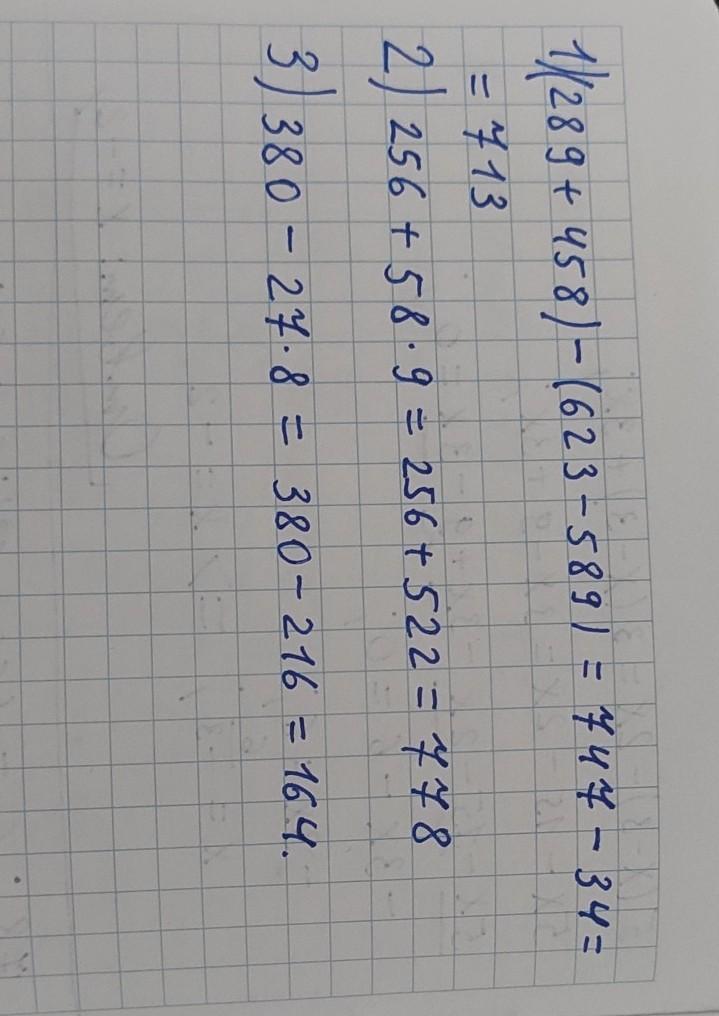 1)(289 + 458) - (623 - 589) = 747 - 34 =
= 713
2) 256 + 58 · 9 = 256 + 522 = 778
3) 380 - 27 · 8 = 380 - 216 = 164.